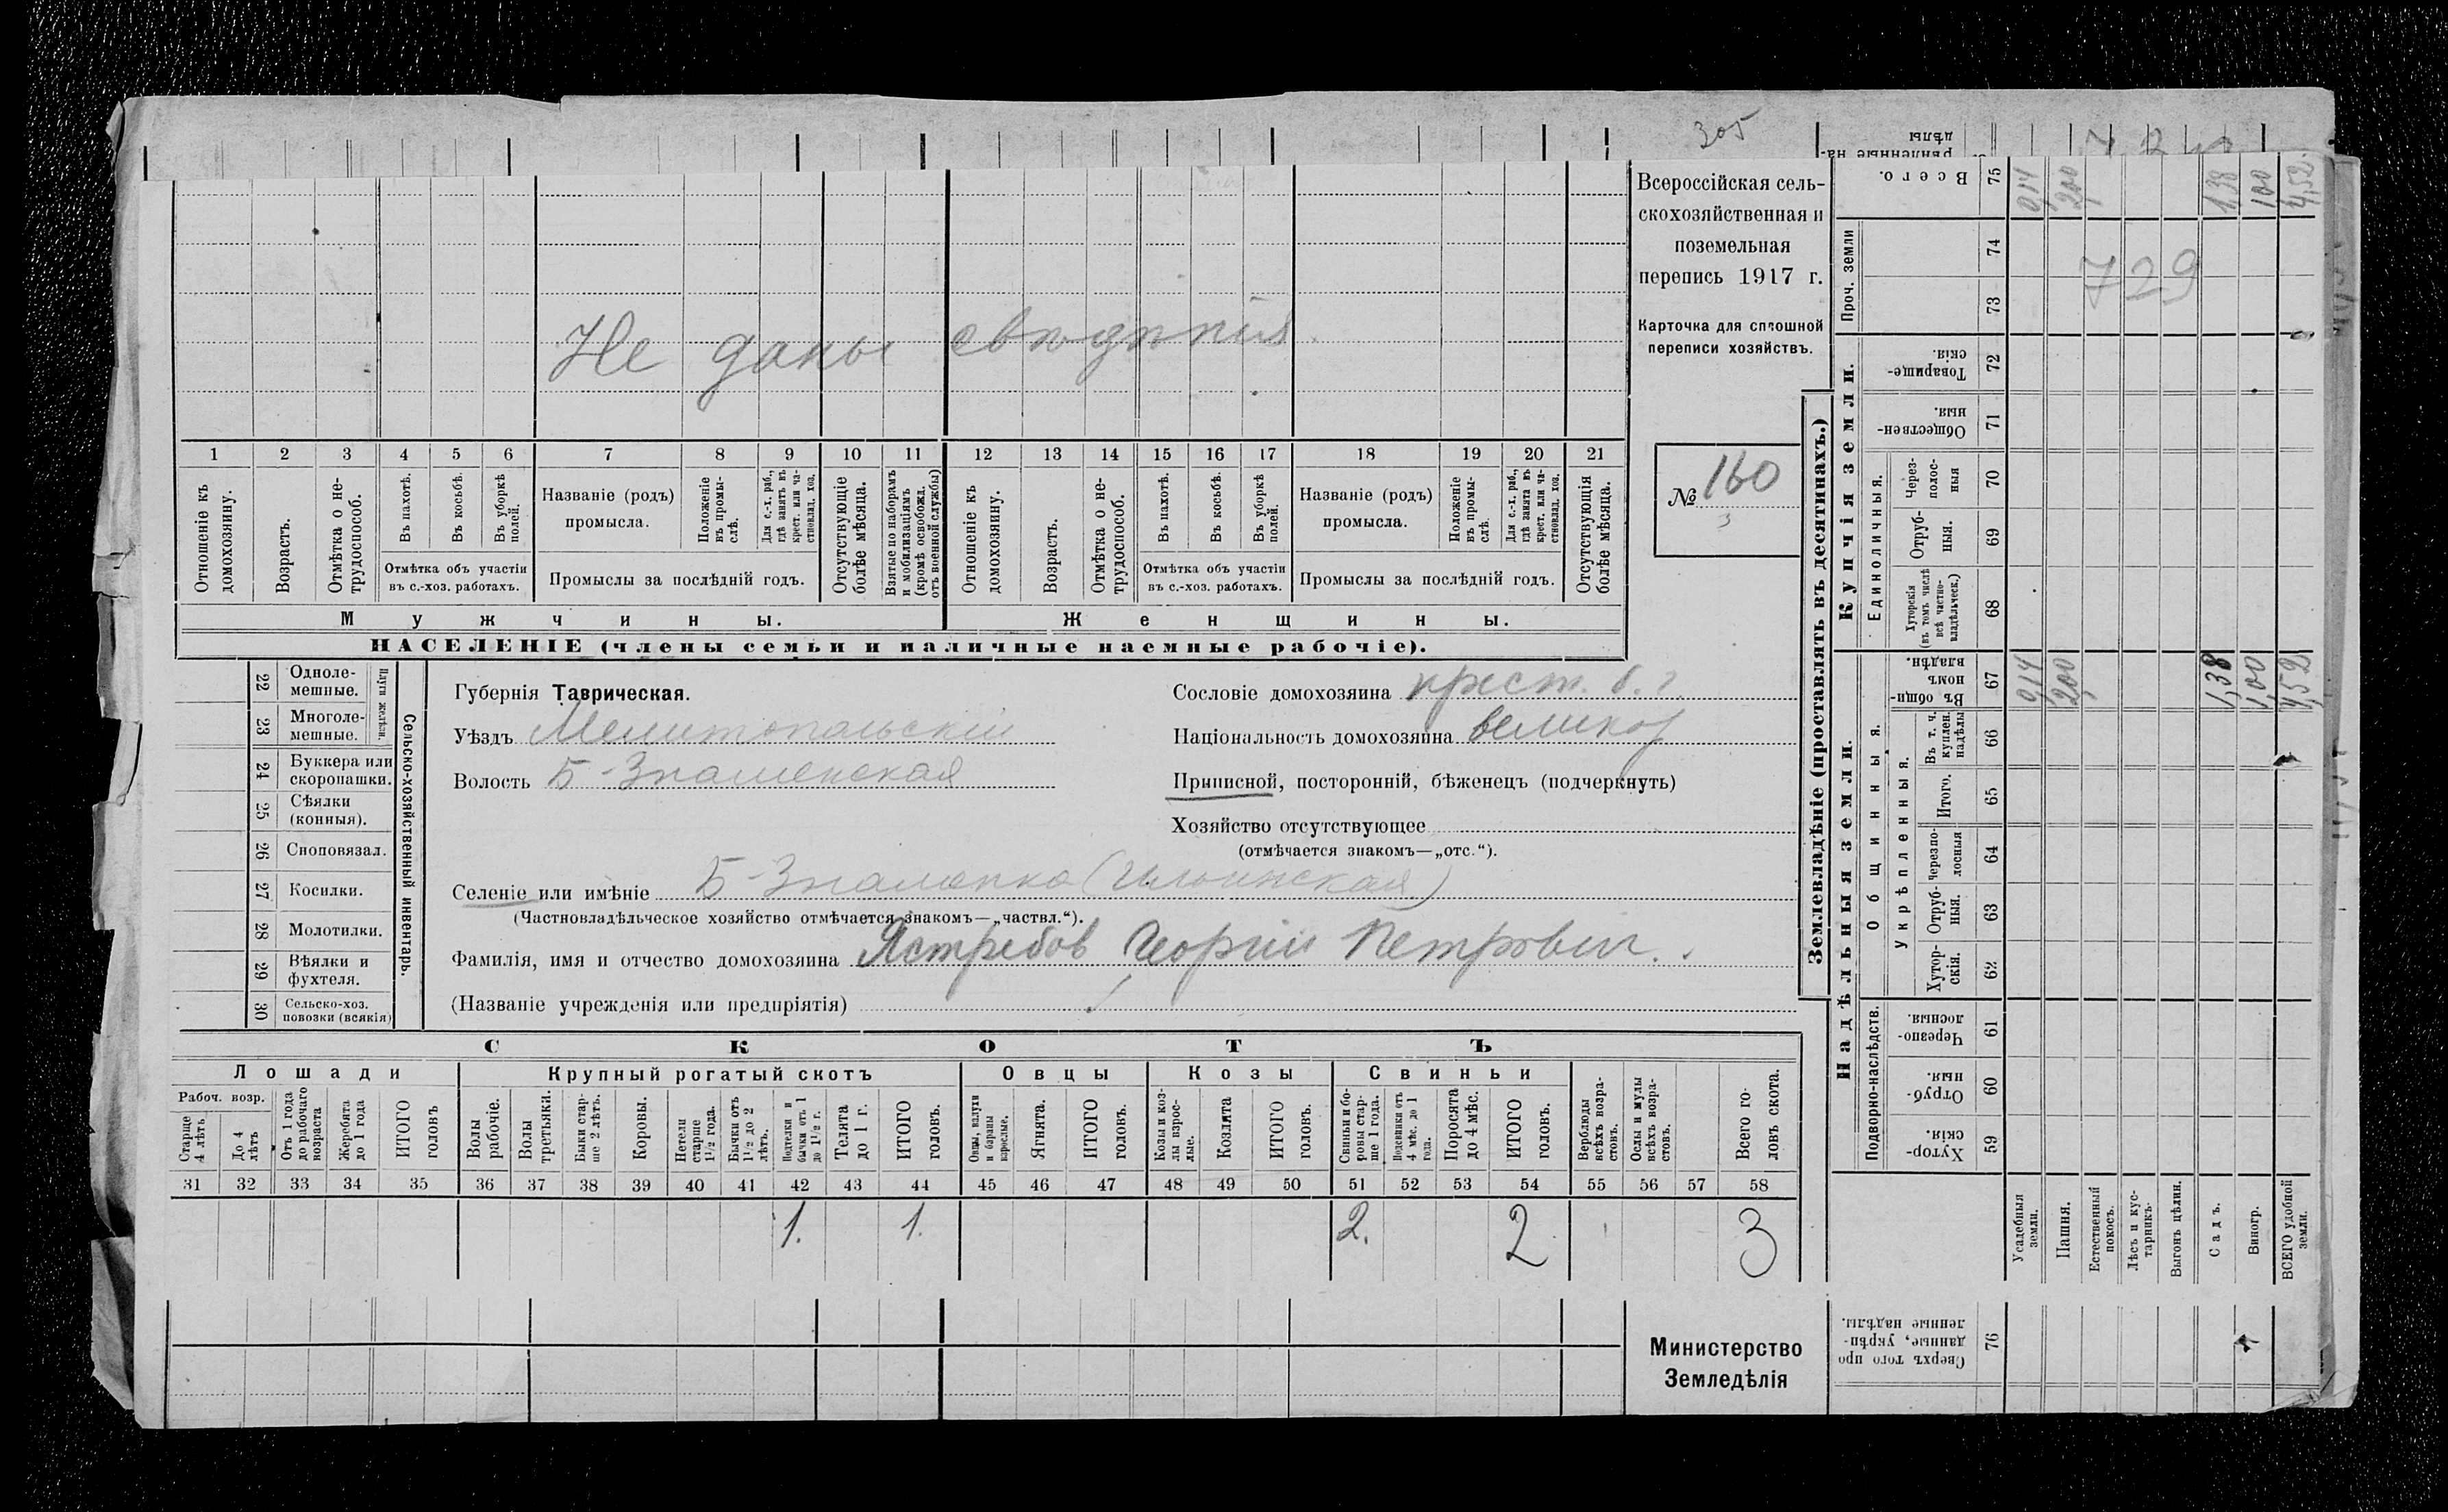 305
Всероссійская сель-
скохозяйственная и
поземельная
перепись 1917 г.
Карточка для сплошной
переписи хозяйствъ.
№ 160
3
Не даны свѣдѣнія.
1 2 3 4 5 6 7 8 9 10 11 12 13 14 15 16 17 18 19 20 21
Отношеніе къ домохозяину.
Возрастъ.
Отмѣтка о не-трудоспособ.
Въ пахотѣ.
Въ косьбѣ.
Въ уборкѣ полей.
Отмѣтка объ участіи
въ с.-хоз. работахъ.
Названіе (родъ)
промысла.
Положеніе въ промы-слѣ.
Для с.-х. раб., гдѣ занятъ въ крест. или ча-стновлад. хоз.
Промыслы за послѣдній годъ.
Отсутствующіе болѣе мѣсяца.
Взятые по наборамъ и мобилизаціямъ (кромѣ освобожд. отъ военной службы)
Отношеніе къ домохозяину.
Возрастъ.
Отмѣтка о не-трудоспособ.
Въ пахотѣ.
Въ косьбѣ.
Въ уборкѣ полей.
Отмѣтка объ участіи
въ с.-хоз. работахъ.
Названіе (родъ)
промысла.
Положеніе въ промы-слѣ.
Для с.-х. раб., гдѣ занята въ крест. или ча-стновлад. хоз.
Промыслы за послѣдній годъ.
Отсутствующія болѣе мѣсяца.
Мужчины.
Женщины.
НАСЕЛЕНІЕ (члены семьи и наличные наемные рабочіе).
22 Одноле-
мешные.
23 Многоле-
мешные.
Плуги желѣзн.
24 Буккера или
скоропашки.
25 Сѣялки
(конныя).
26 Сноповязал.
27 Косилки.
28 Молотилки.
29 Вѣялки и
фухтеля.
30 Сельско-хоз.
повозки (всякія)
Сельско-хозяйственный инвентарь.
Губернія Таврическая.
Уѣздъ Мелитопольскій
Волость Б-Знаменская
Сословіе домохозяина крест. б. г.
Національность домохозяина великор
Приписной, посторонній, бѣженецъ (подчеркнуть)
Хозяйство отсутствующее
(отмѣчается знакомъ—„отс.“).
Селеніе или имѣніе Б-Знаменка (Ильинская)
(Частновладѣльческое хозяйство отмѣчается знакомъ—„частвл.“).
Фамилія, имя и отчество домохозяина Ястребов Георгій Петровіч.
(Названіе учрежденія или предпріятія)
СКОТЪ
Лошади
Крупный рогатый скотъ
Овцы
Козы
Свиньи
Рабоч. возр.
Старше 4 лѣтъ
До 4 лѣтъ
Отъ 1 года до рабочаго возраста
Жеребята до 1 года
ИТОГО головъ
Волы рабочіе.
Волы третьяки.
Быки стар-ше 2 лѣтъ.
Коровы.
Нетели старше 1½ года.
Бычки отъ 1½ до 2 лѣтъ.
Подтелки и бычки отъ 1 до 1½ г.
Телята до 1 г.
ИТОГО головъ.
Овцы, валухи и бараны взрослые.
Ягнята.
ИТОГО головъ.
Козы и коз-лы взрос-лые.
Козлята
ИТОГО головъ.
Свиньи и бо-ровы стар-ше 1 года.
Подсвинки отъ 4 мѣс. до 1 года.
Поросята до 4 мѣс.
ИТОГО головъ.
Верблюды всѣхъ возра-стовъ.
Ослы и мулы всѣхъ возра-стовъ.
Всего го-ловъ скота.
31 32 33 34 35 36 37 38 39 40 41 42 43 44 45 46 47 48 49 50 51 52 53 54 55 56 57 58
1. 1. 2. 2 3
Министерство
Земледѣлія
Землевладѣніе (проставлять въ десятинахъ.)
Надѣльныя земли.
Купчія земли.
Проч. земли
Подворно-наслѣдств.
Общинныя.
Укрѣпленныя.
Единоличныя.
Всего. 75
74
73
Товарище-скія. 72
Обществен-ныя. 71
Через-полос-ныя 70
Отруб-ныя. 69
Хуторскія (въ томъ числѣ всѣ частно-владѣльческ.) 68
Въ общи-номъ владѣн. 67
Въ т. ч. куплен. надѣлы 66
Итого. 65
Черезпо-лосныя 64
Отруб-ныя. 63
Хутор-скія. 62
Черезпо-лосныя. 61
Отруб-ныя. 60
Хутор-скія. 59
Усадебныя земли.
Пашня.
Естественный покосъ.
Лѣсъ и кус-тарникъ.
Выгонъ цѣлин.
Садъ.
Виногр.
ВСЕГО удобной земли.
0,14 2,00 1,38 1,00 4,52
729
0,14 2,00 1,38 1,00 4,52
Сверхъ того про
данные, укрѣп-
ленные надѣлы. 76